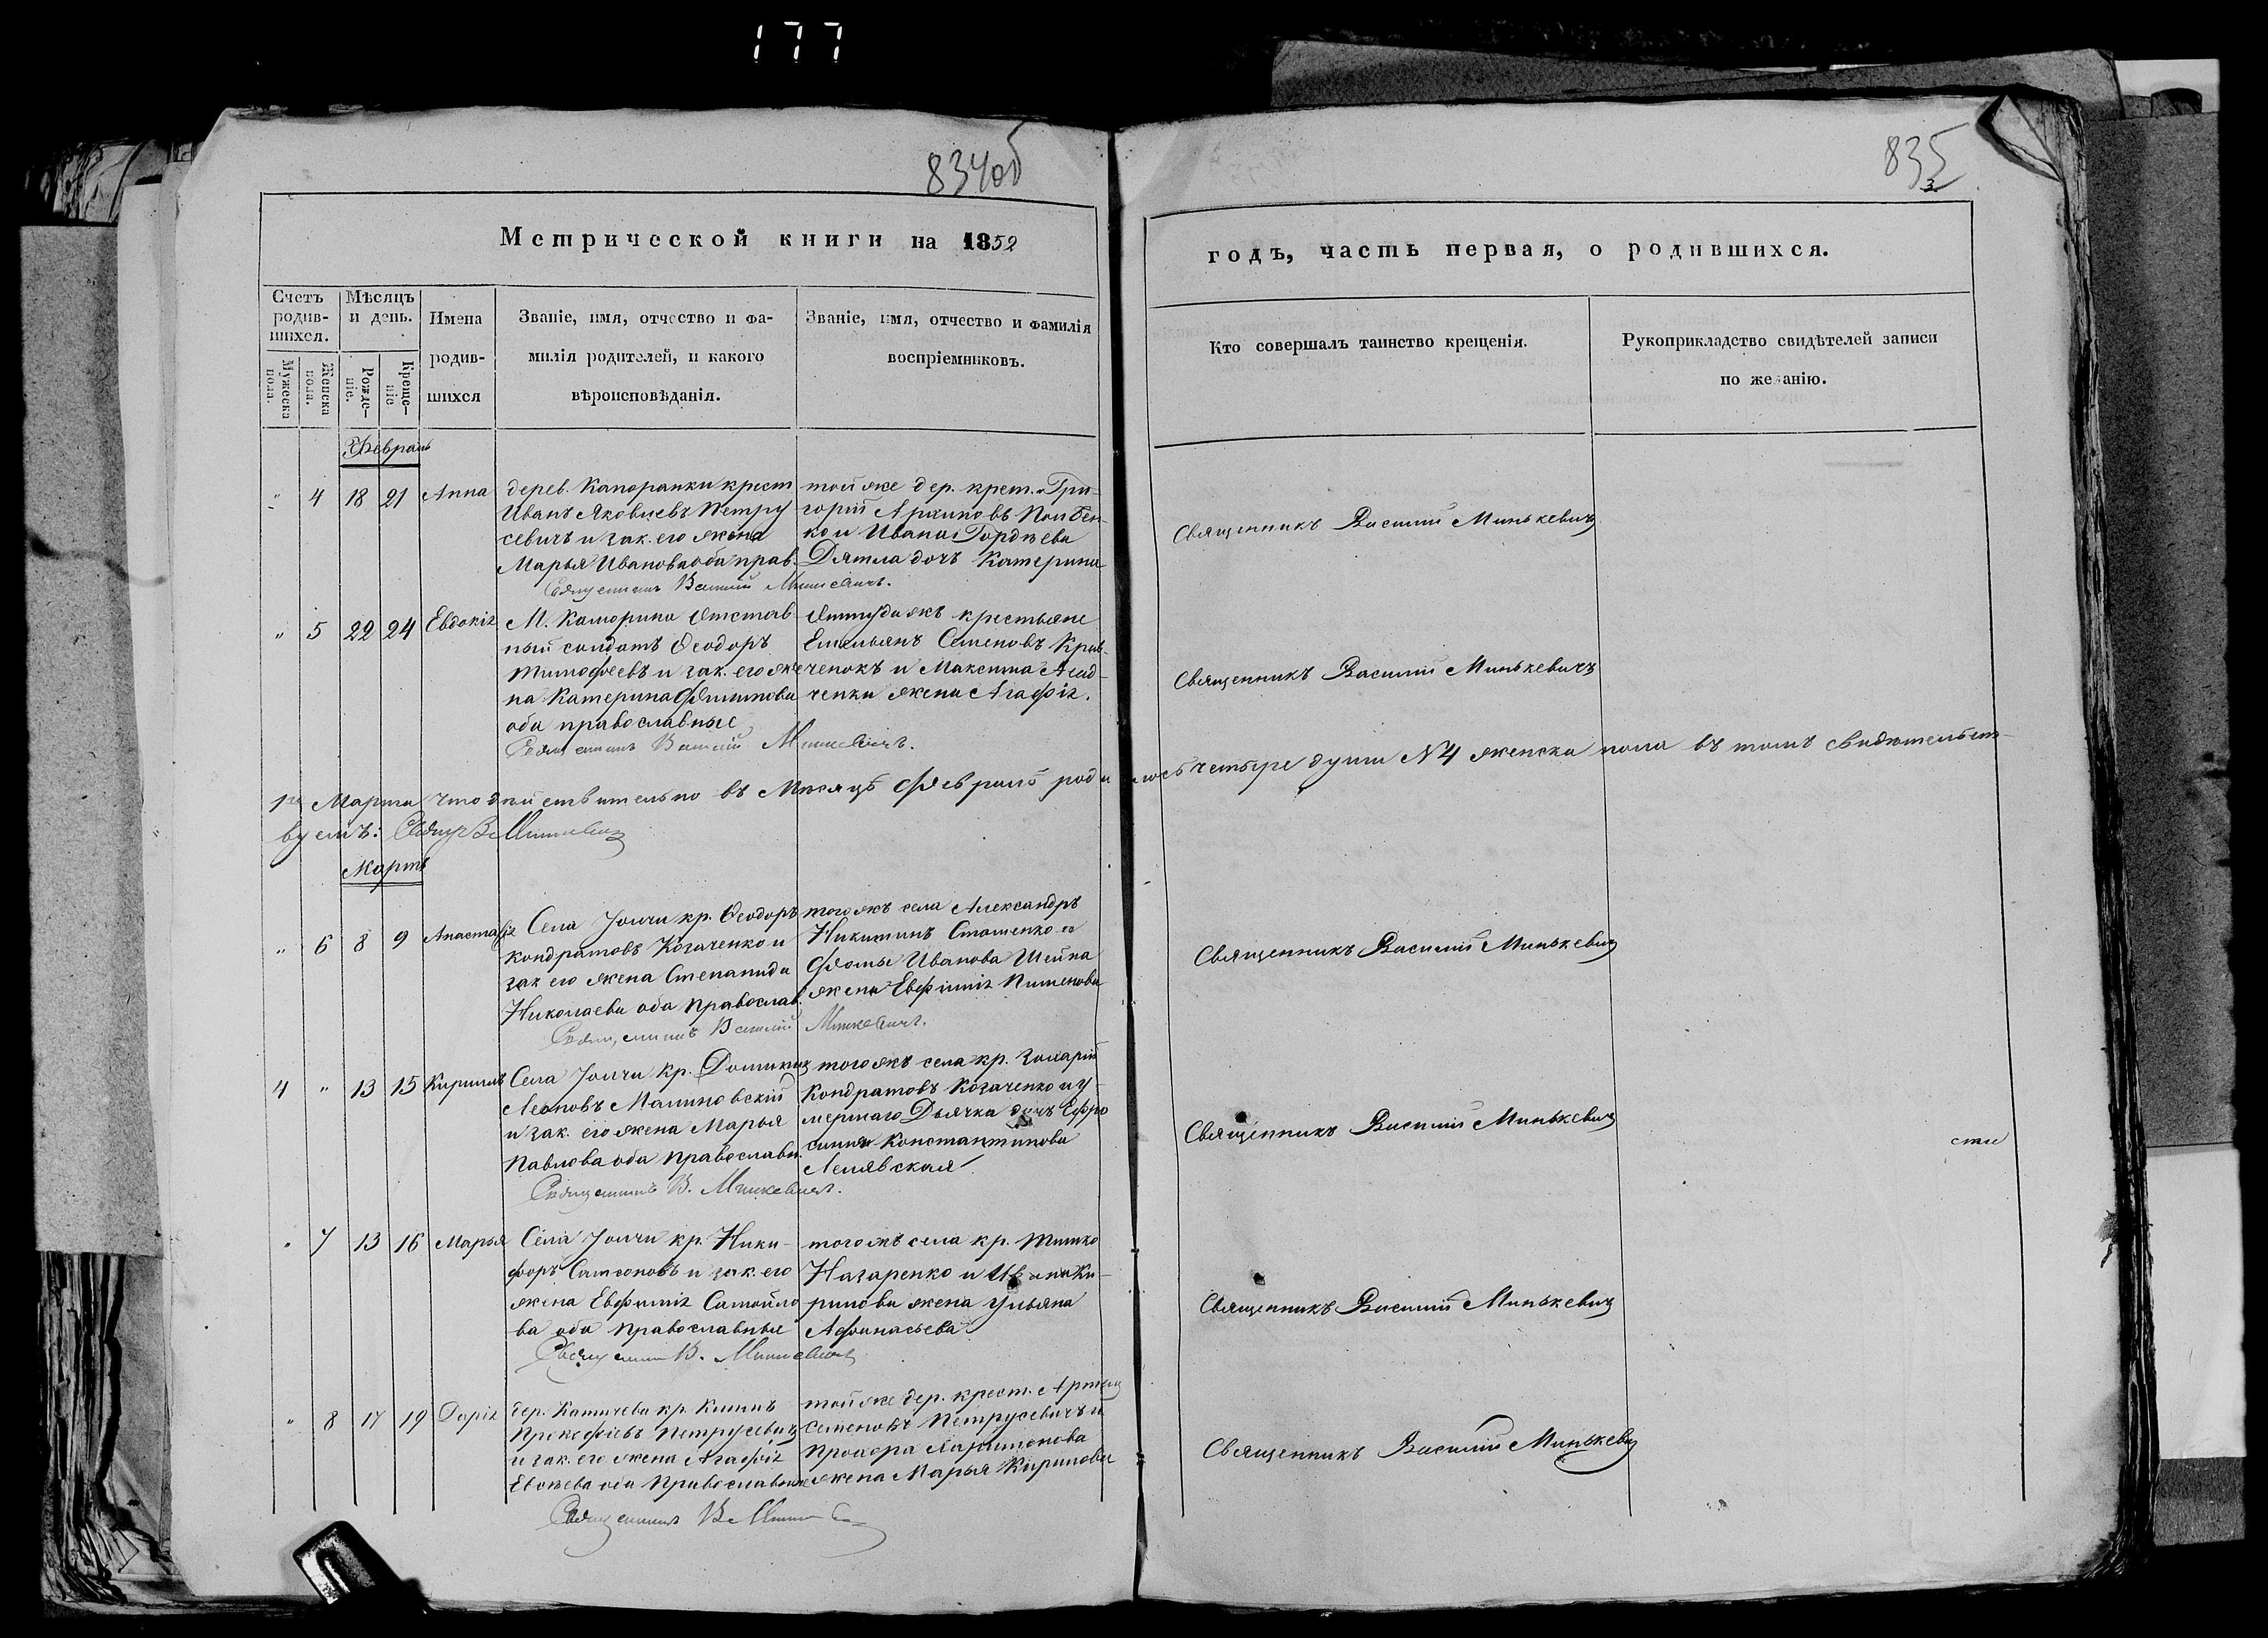 177
834об
835
3
Метрической книги на 1852
годъ, часть первая, о родившихся.
Счетъ родив-
шихся.
Мѣсяцъ
и день.
Имена
родив-
шихся
Званіе, имя, отчество и фа-
милія родителей, и какого
вѣроисповѣданія.
Званіе, имя, отчество и фамилія
воспріемниковъ.
Кто совершалъ таинство крещенія.
Рукоприкладство свидѣтелей записи
по желанію.
Мужеска
пола.
Женска
пола.
Рожде-
ніе.
Креще-
ніе
Февраль
" 4 18 21 Анна
дерев. Капоранки крест
Иванъ Яковлевъ Петру
севичъ и зак. его жена
Марья Иванова оба прав.
Священникъ Василій Минкевичъ.
той же дер. крест. Гри-
горій Архиповъ
ко и Ивана Гордѣева
Дятла дочь Катерина
Священникъ Василій Минькевичъ
" 5 22 24 Евдокія
М. Отстав
ный солдатъ Ѳеодоръ
Тимофеевъ и зак. его же
на Катерина Филипова
оба православные
Священникъ Василій Минкевичъ.
крестьяне
Емельянъ Семеновъ Крав-
ченокъ и Максима
ченка жена Агафія.
Священникъ Василій Минькевичъ
1го Марта что дѣйствительно въ Мѣсяцѣ Февралѣ родилось четыре души №4 женска пола въ томъ свидѣтельст-
вуемъ: Свящ. В. Минкевич
Мартъ
" 6 8 9 Анастасія
Села Іолчи кр. Ѳеодоръ
Кондратовъ Козаченко и
зак его жена Степанида
Николаева оба Православ.
Священникъ Василій Минкевичъ.
того жъ села Александръ
Никитинъ Стоменко и
Фомы Иванова Шейна
жена Евфимія Пименова
Священникъ Василій Минькевич
4 " 13 15 Кирилъ
Села Іолчи кр. Доминик
Леоновъ Малиновскій
и зак. его жена Марья
Павлова оба Православн.
Священникъ В. Минкевичъ.
того жъ села кр. Захарій
Кондратовъ Козаченко и у
мершаго Дьячка дочь Ефро
синия Константинова
Лелявская
Священникъ Василій Минькевич
сти
" 7 13 16 Марья
Села Іолчи кр. Ники-
форъ Самсоновъ и зак. его
жена Евфимія Самойло
ва оба православные
Священникъ В. Минкевичъ
того жъ села кр. Тишко
Назаренко и Ивана Ки-
рилова жена Ульяна
Афонасьева
Священникъ Василій Минькевич
" 8 17 19 Дарія
дер. Катичева кр.
Прокофіевъ Петрусевич
и зак. его жена Агафія
Евсѣева оба Православные
Священникъ В. Минкевич
той же дер. крест. Артем
Семеновъ Петрусевичъ и
Прохора Ларионова
жена Марья Кирилова
Священникъ Василій Минькевич